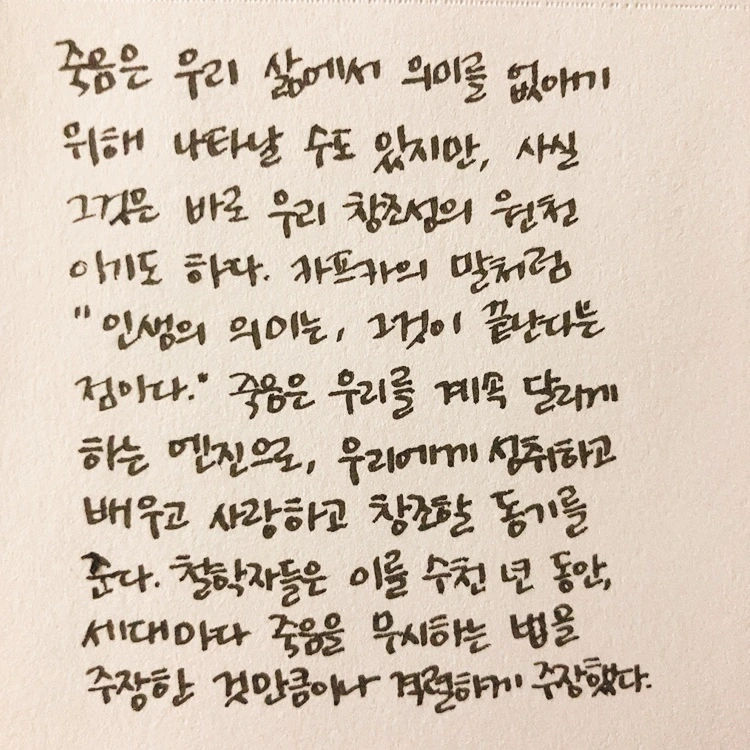 죽음은 우리 삶에서 의미를 없애기
위해 나타날 수도 있지만, 사실
그것은 바로 우리 창조성의 원천
이기도 하다. 카프카의 말처럼
"인생의 의미는, 그것이 끝난다는
점이다." 죽음은 우리를 계속 달리게
하는 엔진으로, 우리에게 성취하고
배우고 사랑하고 창조할 동기를
준다. 철학자들은 이를 수천 년 동안,
세대마다 죽음을 무시하는 법을
주장한 것만큼이나 격렬하게 주장했다.